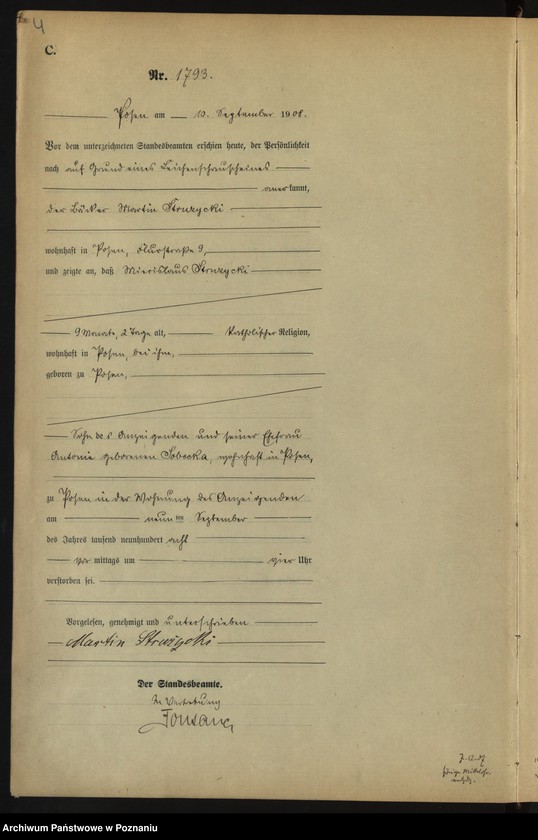 4
C.
Nr. 1793.
Posen am 10. September 1908.
Vor dem unterzeichneten Standesbeamten erschien heute, der Persönlichkeit
nach auf Grund eines Leichenschauscheines
anerkannt,
der Bäcker Martin Struzycki
wohnhaft in Posen, Flurstraße 9,
und zeigte an, daß Miecislaus Struzycki
9 Monate, 2 Tage alt, katholischer Religion,
wohnhaft in Posen, bei ihm,
geboren zu Posen,
Sohn des Anzeigenden und seiner Ehefrau
Antonie geborenen Sobecka, wohnhaft in Posen,
zu Posen in der Wohnung des Anzeigenden
am neunten September
des Jahres tausend neunhundert acht
vor mittags um vier Uhr
verstorben sei.
Vorgelesen, genehmigt und unterschrieben
Martin
Der Standesbeamte.
In Vertretung
Fontane
7.12.07
Archiwum Państwowe w Poznaniu